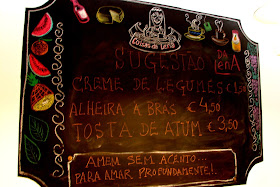 Coisas da Terra
SUGESTÃO DO DIA
CREME DE LEGUMES €1,50
ALHEIRA À BRÁS €4,50
TOSTA DE ATUM €3,50
AMEM SEM ACENTO...
PARA AMAR PROFUNDAMENTE!.